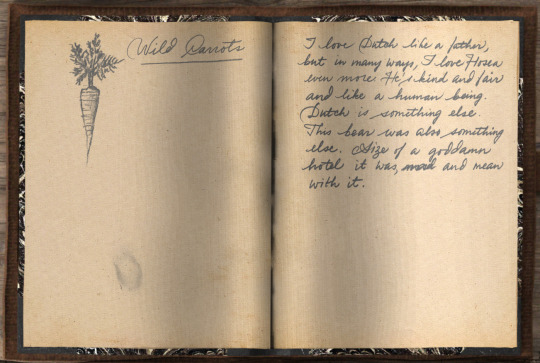 Wild Carrots
I love Dutch like a father,
but in many ways, I love Hosea
even more. He's kind and fair
and like a human being.
Dutch is something else.
This bear was also something
else. Size of a goddamn
hotel it was, and mean
with it.